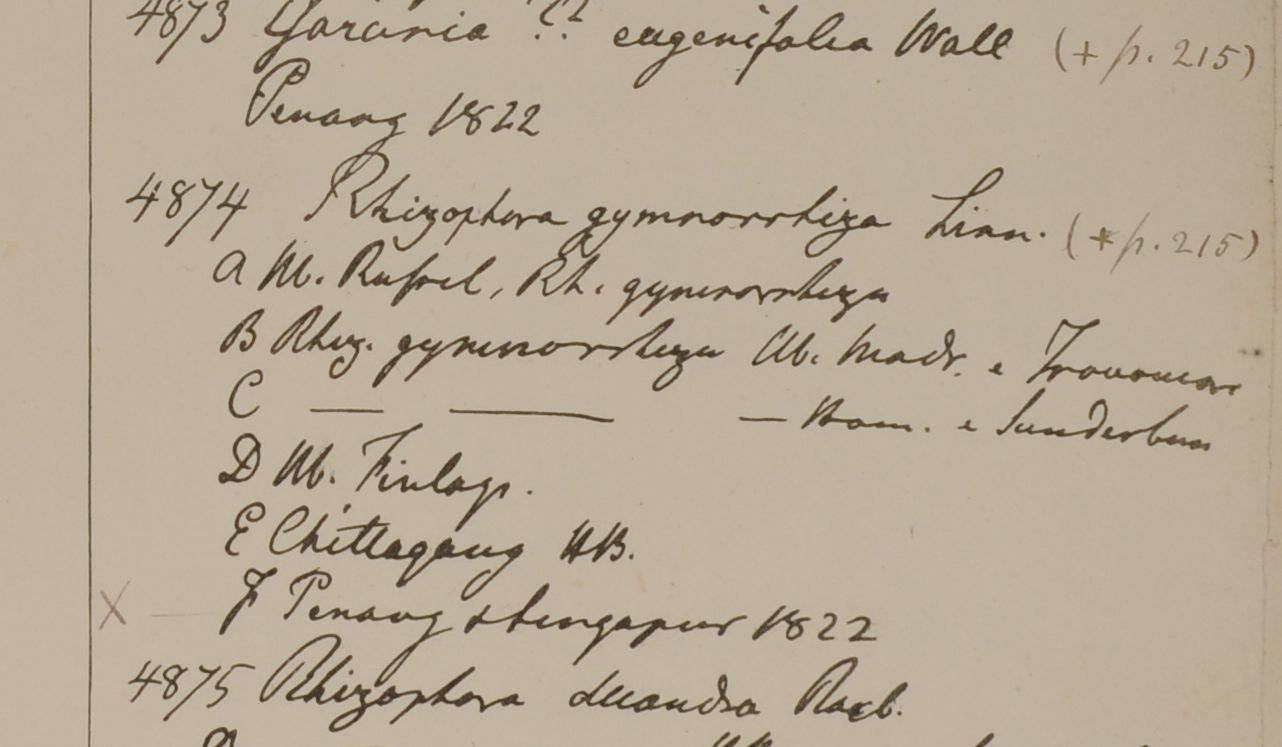 4873 Garcinia ?? eugenifolia Wall (+ p. 215)
Penang 1822
4874 Rhizophora gymnorrhiza Linn. (+ p. 215)
a Hb. Russel, Rh. gymnorrhiza
B Rhiz. gymnorrhiza Hb. Madr. e
C — — — Ham. e Sunderbun
D Hb. Finlays.
E Chittagang HB.
X — F Penang & Singapur 1822
4875 Rhizophora decandra Roxb.